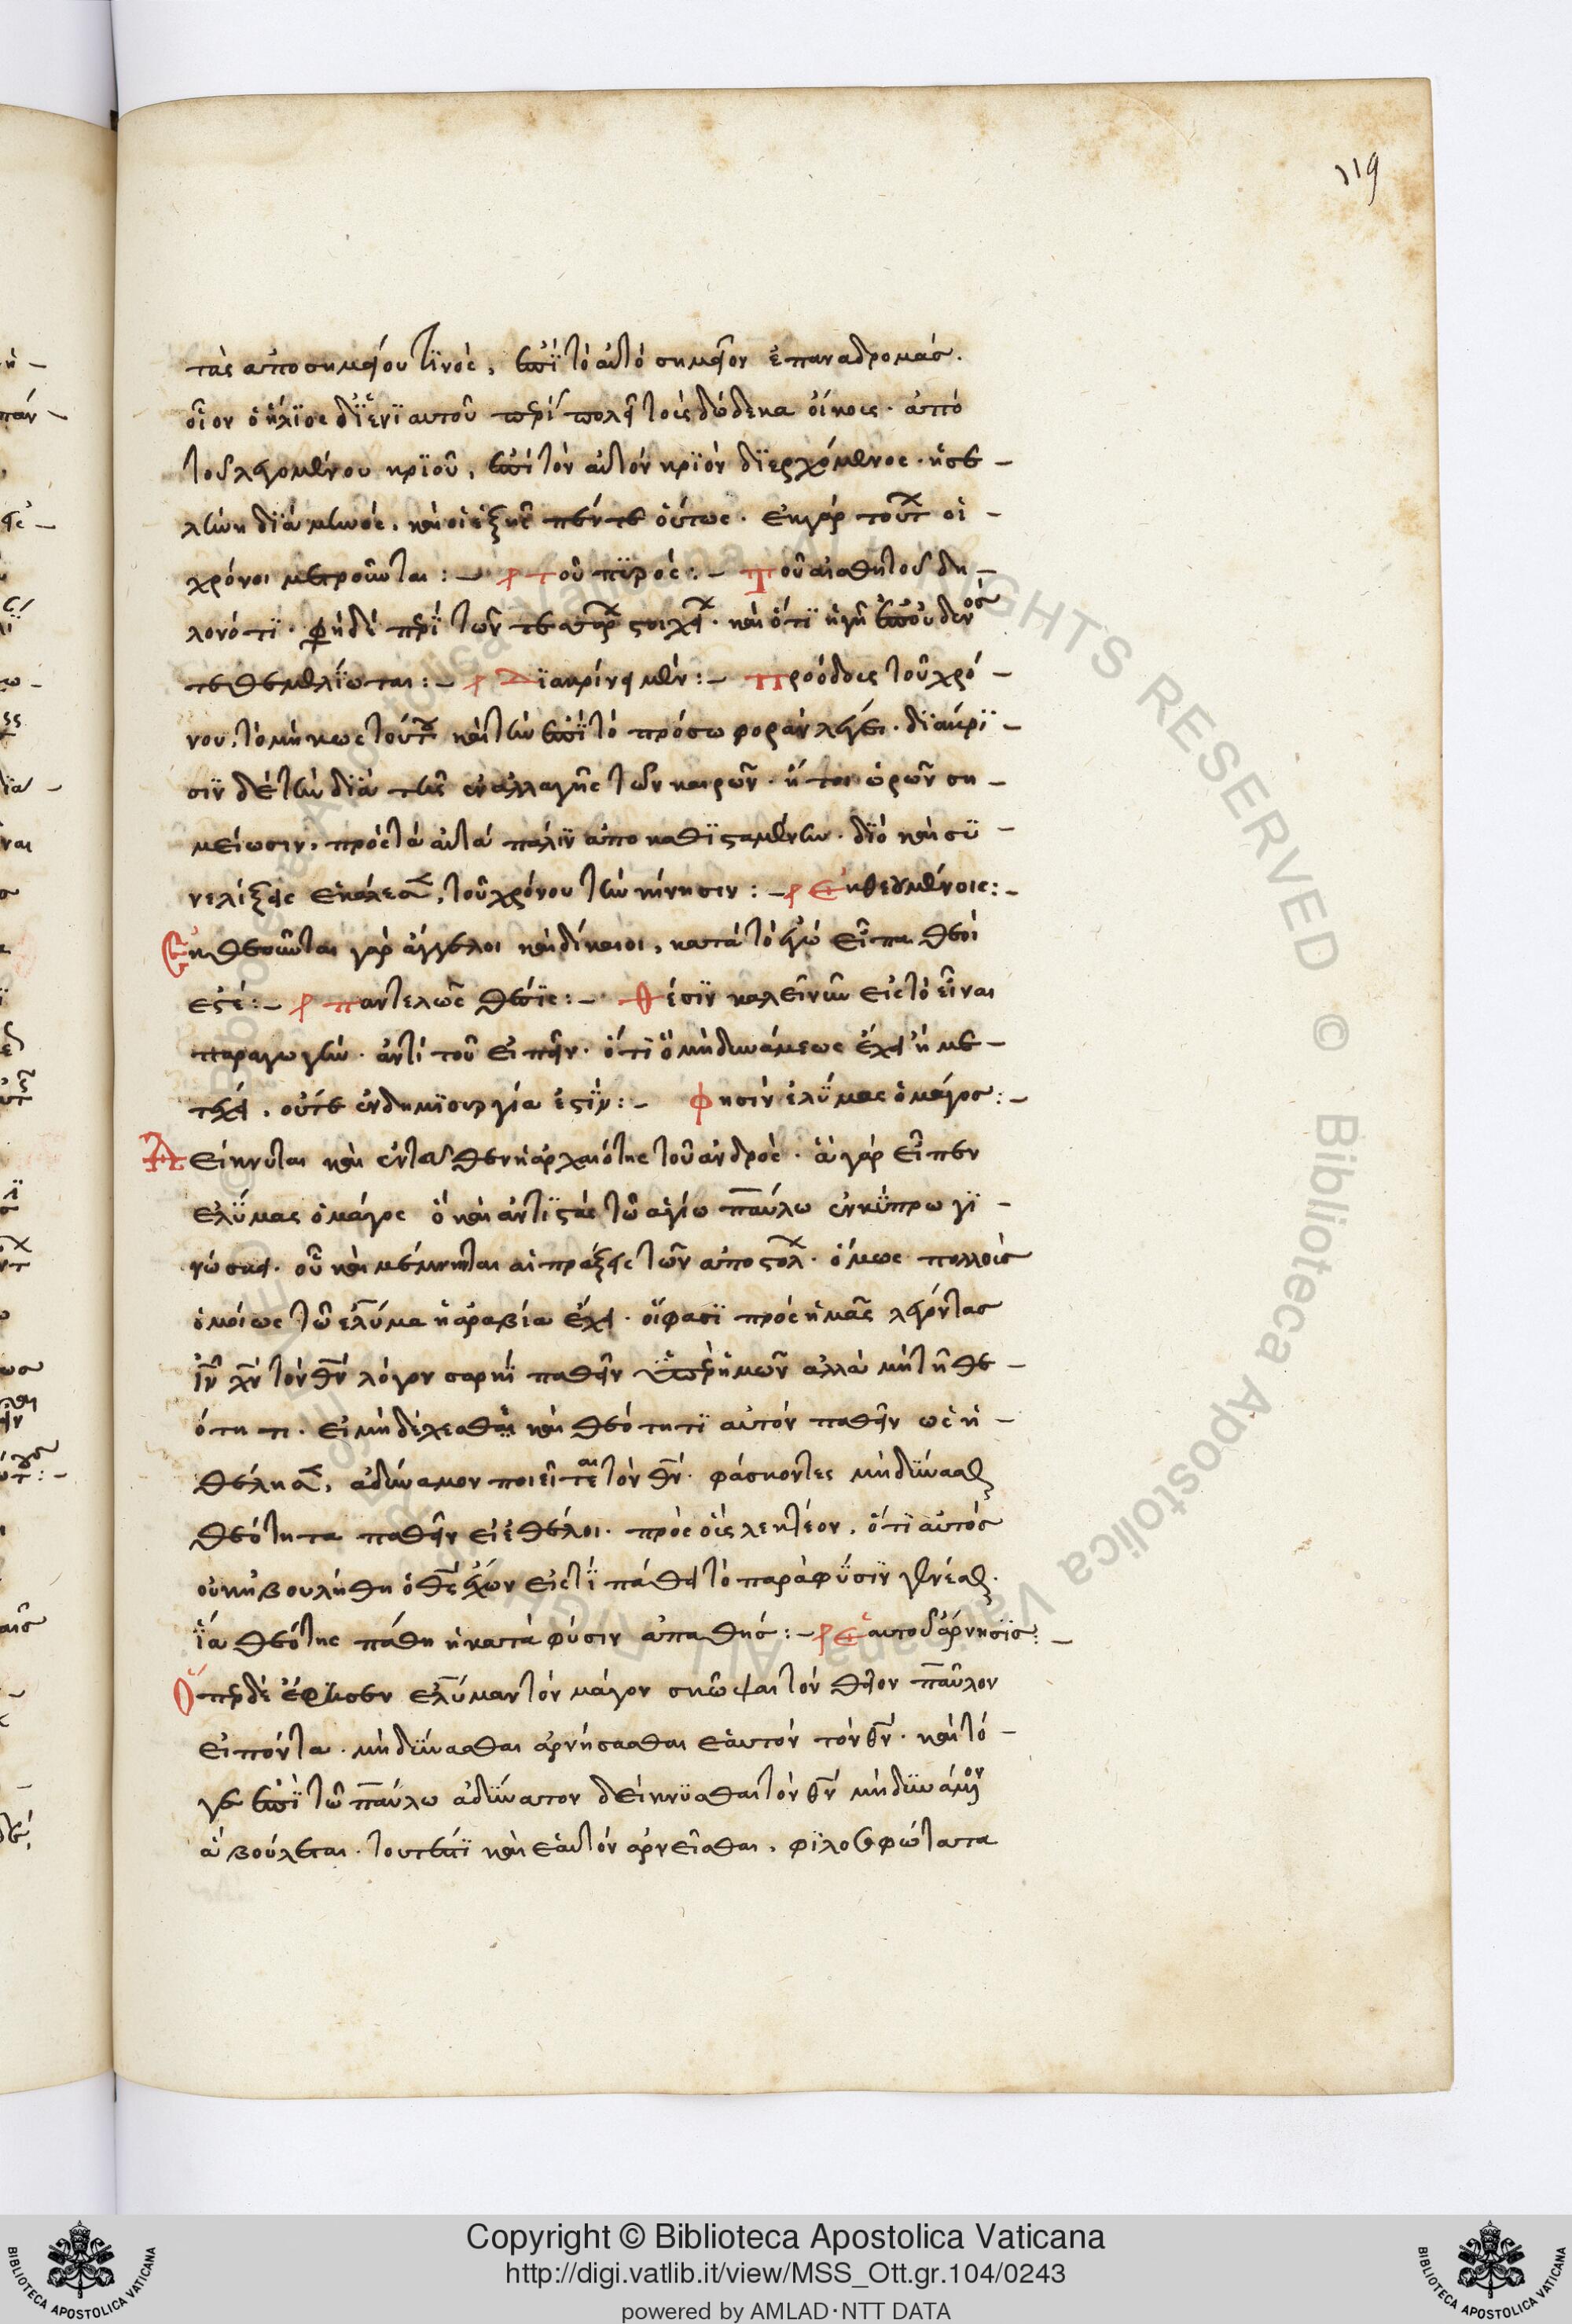 119
τὰς ἀπὸ σημείου τινὸς, ἐπὶ τὸ αὐτὸ σημεῖον ἐπαναδρομάς.
οἷον ὁ ἥλιος δι' ἑνιαυτοῦ περιπολεῖ τοὺς δώδεκα οἴκους. ἀπὸ
τοῦ λεγομένου κριοῦ, ἐπὶ τὸν αὐτὸν κριὸν διερχόμενος. ἡ σε-
λήνη διὰ μηνός, καὶ οἱ ἑξῆς πέντε οὕτως. ἐκ γὰρ τούτ οἱ-
χρόνοι μετροῦνται:- Τοῦ πυρός:- Τοῦ αἰσθητοῦ δη-
λονότι. φησὶ δὲ περὶ τῶν τεσσάρ στοιχεί. καὶ ὅτι ἡ γῆ ἐπ' οὐδενὸς
τεθεμελίωται:- Διακρίνει μέν:- Προόδους τοῦ χρό-
νου, τὸ μῆκος τούτου καὶ τὴν ἐπὶ τὸ πρόσω φορὰν λέγει. διάκρι-
σιν δὲ τὴν διὰ τῆς ἐναλλαγῆς τῶν καιρῶν. ἤτοι ὡρῶν ση-
μείωσιν, πρὸς τὰ αὐτὰ πάλιν ἀποκαθισταμένην. διὸ καὶ συ-
νελίξεις ἐκάλεσε, τοῦ χρόνου τὴν κίνησιν:- Ἐκθεουμένοις:-
Ἐκθεοῦνται γὰρ ἄγγελοι καὶ δίκαιοι, κατὰ τὸ ἐγὼ εἶπα θεοί
ἐστέ:- Παντελῶς θέσις:- Θέσιν καλεῖ νῦν εἰς τὸ εἶναι
παραγωγήν. ἀντὶ τοῦ εἰπεῖν. ὅτι ὃ μὴ δυνάμεως ἔχει ἢ με-
τέχει. οὔτε ἐν δημιουργία ἐστίν:- φησὶν ἐλύμας ὁ μάγος:-
Δείκνυται καὶ ἐντεῦθεν ἡ ἀρχαιότης τοῦ ἀνδρός. ἃ γὰρ εἶπεν
ἐλύμας ὁ μάγος ὁ καὶ ἀντιστὰς τῶ ἁγίω παύλω ἐν κύπρω γι-
νώσκει. οὗ καὶ μέμνηνται αἱ πράξεις τῶν ἀποστόλ. ὅμως πολλοὺς
ὁμοίως τῶ ἐλύμα ἡ ἀραβία ἔχει. οἵ φασὶ πρὸς ἡμᾶς λέγοντας
ἰν χν τὸν θν λόγον σαρκὶ παθεῖν ὑπὲρ ἡμῶν ἀλλὰ μὴ τῆ θε-
ότητι. εἰ μὴ δέχεσθαι καὶ θεότητι αὐτὸν παθεῖν ὡς ἠ-
θέλησε, ἀδύναμον ποιεῖται τὸν θν. φάσκοντες μὴ δύνασθαι
θεότητα παθεῖν εἰ ἐθέλοι. πρὸς οὓς λεκτέον, ὅτι αὐτὸς
οὐκ ἠβουλήθη ὁ θς ἑκὼν εἰς τὶ πάθει τὸ παρὰ φύσιν γενέσθαι.
ἵνα θεότης πάθη ἡ κατὰ φύσιν ἀπαθής:- Ἑαυτοῦ ἄρνησις:-
Ὅπερ δὲ ἔφησεν ἐλύμαν τὸν μάγον σκῶψαι τὸν θεῖον παῦλον
εἰπόντα. μὴ δύνασθαι ἀρνήσασθαι ἑαυτὸν τὸν θν. καὶ τό-
γε ἐπὶ τῶ παύλω ἀδύνατον δείκνυσθαι τὸν θν μὴ δυνάμενον
ἃ βούλεται. τουτέστι καὶ ἑαυτὸν ἀρνεῖσθαι, φιλοσοφώτατα
Copyright © Biblioteca Apostolica Vaticana
http://digi.vatlib.it/view/MSS_Ott.gr.104/0243
powered by AMLAD·NTT DATA